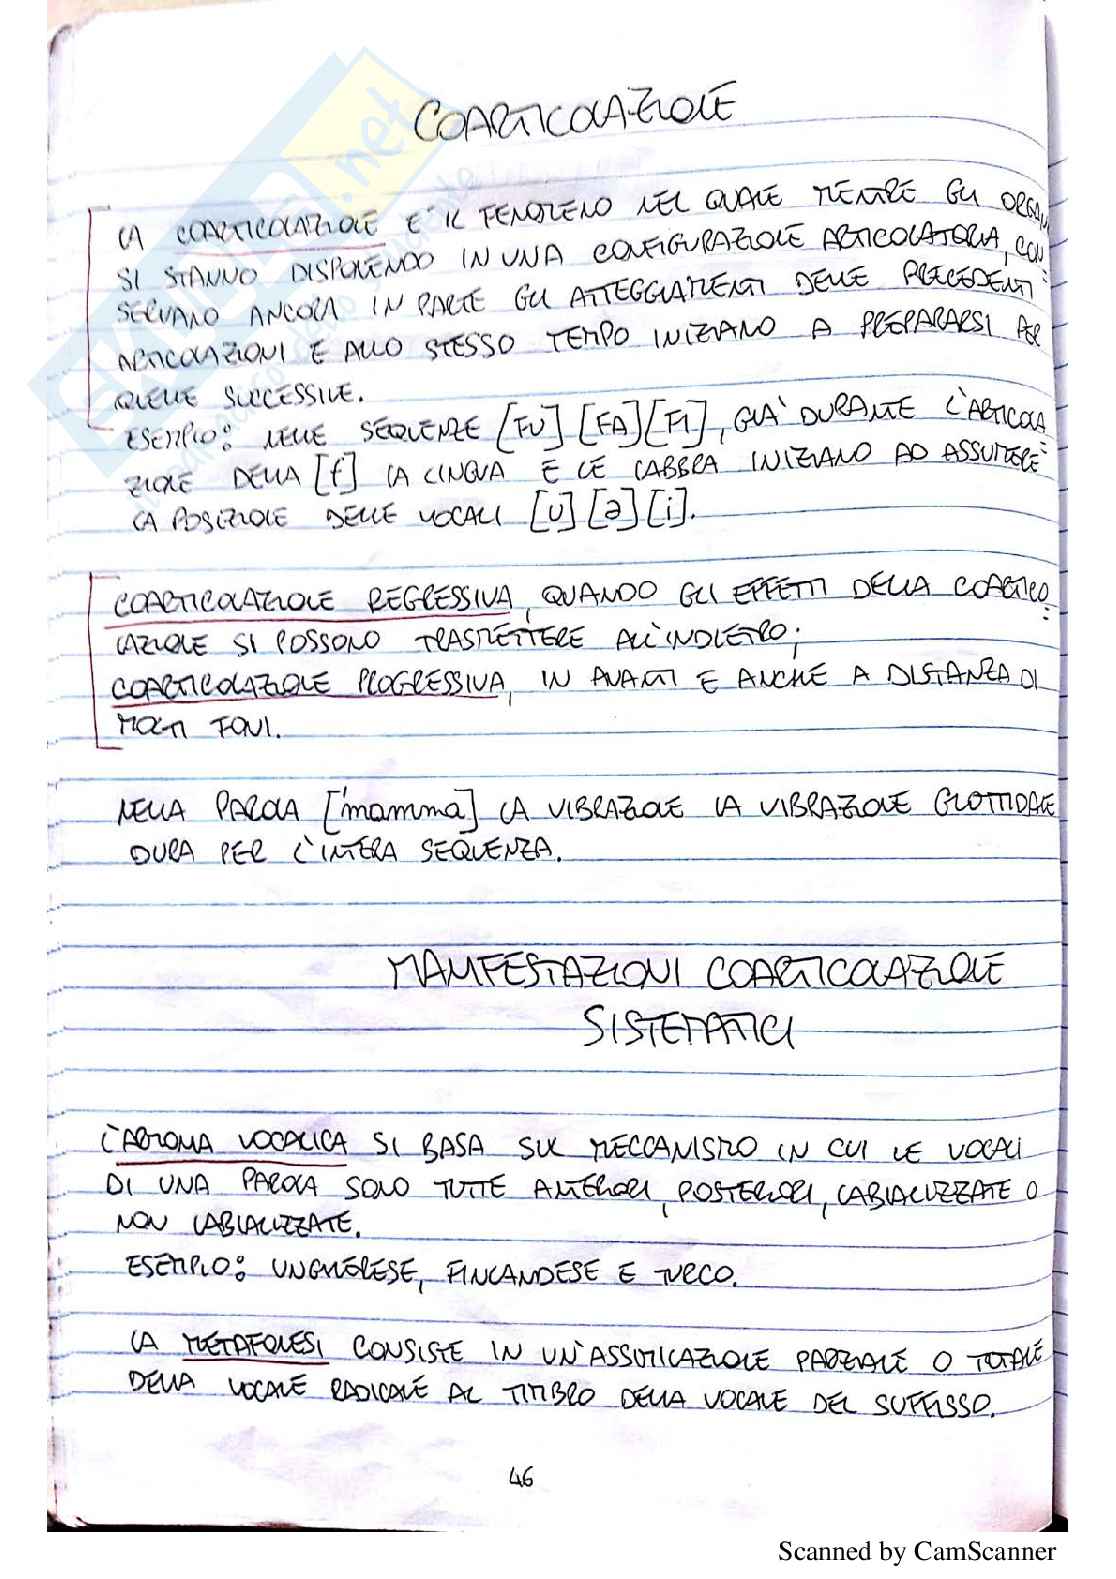 COARTICOLAZIONE
LA COARTICOLAZIONE E' IL FENOMENO NEL QUALE MENTRE GLI ORGANI
SI STANNO DISPONENDO IN UNA CONFIGURAZIONE ARTICOLATORIA, CON=
SERVANO ANCORA IN PARTE GLI ATTEGGIAMENTI DELLE PRECEDENTI
ARTICOLAZIONI E ALLO STESSO TEMPO INIZIANO A PREPARARSI PER
QUELLE SUCCESSIVE.
ESEMPIO: NELLE SEQUENZE [FU] [FA] [FI], GIA' DURANTE L'ARTICOLA=
ZIONE DELLA [f] LA LINGUA E LE LABBRA INIZIANO AD ASSUMERE
LA POSIZIONE DELLE VOCALI [u] [a] [i].
COARTICOLAZIONE REGRESSIVA, QUANDO GLI EFFETTI DELLA COARTICO=
LAZIONE SI POSSONO TRASMETTERE ALL'INDIETRO;
COARTICOLAZIONE PROGRESSIVA, IN AVANTI E ANCHE A DISTANZA DI
MOLTI FONI.
NELLA PAROLA ['mamma] LA VIBRAZIONE LA VIBRAZIONE GLOTTIDALE
DURA PER L'INTERA SEQUENZA.
MANIFESTAZIONI COARTICOLAZIONE
SISTEMATICI
L'ARMONIA VOCALICA SI BASA SUL MECCANISMO IN CUI LE VOCALI
DI UNA PAROLA SONO TUTTE ANTERIORI, POSTERIORI, LABIALIZZATE O
NON LABIALIZZATE.
ESEMPIO: UNGHERESE, FINLANDESE E TURCO.
LA METAFONESI CONSISTE IN UN'ASSIMILAZIONE PARZIALE O TOTALE
DELLA VOCALE RADICALE AL TIMBRO DELLA VOCALE DEL SUFFISSO.
46
Scanned by CamScanner